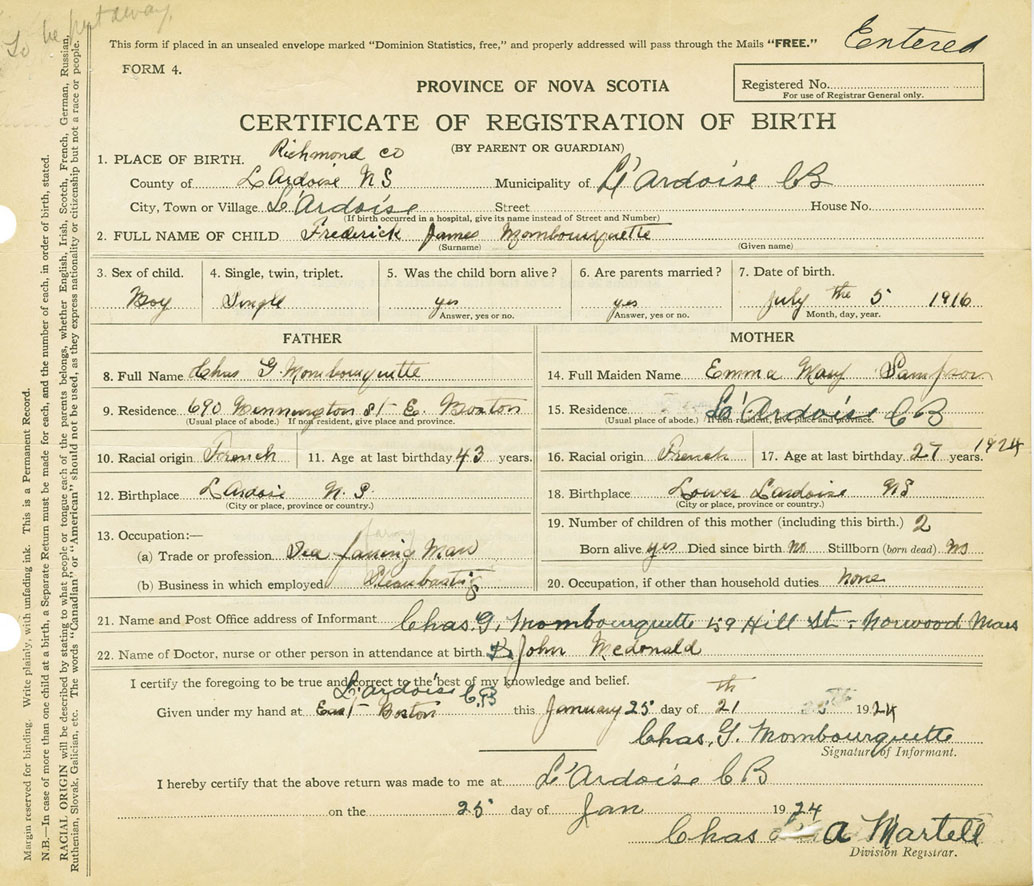 To be put away
This form if placed in an unsealed envelope marked “Dominion Statistics, free,” and properly addressed will pass through the Mails “FREE.”
Entered
FORM 4.
PROVINCE OF NOVA SCOTIA
Registered No.
For use of Registrar General only.
CERTIFICATE OF REGISTRATION OF BIRTH
(BY PARENT OR GUARDIAN)
1. PLACE OF BIRTH. Richmond co
County of L Ardoise N S Municipality of L'Ardoise CB
City, Town or Village L'Ardoise Street House No.
(If birth occurred in a hospital, give its name instead of Street and Number)
2. FULL NAME OF CHILD Frederick James Mombourquette
(Surname) (Given name)
3. Sex of child. 4. Single, twin, triplet. 5. Was the child born alive? 6. Are parents married? 7. Date of birth.
Boy Single yes yes July the 5 1916
Answer, yes or no. Answer, yes or no. Month, day, year.
FATHER MOTHER
8. Full Name Chas G. Mombourquette 14. Full Maiden Name Emma Mary Sampson
9. Residence 690 Bennington St E. Boston 15. Residence L'Ardoise CB
(Usual place of abode.) If non resident, give place and province. (Usual place of abode.) If non-resident, give place and province.
10. Racial origin French 11. Age at last birthday 43 years. 16. Racial origin French 17. Age at last birthday 27 years. 1924
12. Birthplace L Ardoise N. S. 18. Birthplace Lower Lardoise NS
(City or place, province or country.) (City or place, province or country.)
13. Occupation:— 19. Number of children of this mother (including this birth.) 2
(a) Trade or profession Sea faring Man Born alive yes Died since birth No Stillborn (born dead) No
(b) Business in which employed 20. Occupation, if other than household duties None
21. Name and Post Office address of Informant Chas. G. Mombourquette 159 Hill St. Norwood Mass
22. Name of Doctor, nurse or other person in attendance at birth. Dr John Mcdonald
I certify the foregoing to be true and correct to the best of my knowledge and belief.
L'Ardoise C.B
Given under my hand at East Boston this January 25 day of 21th 25th 1924
Chas. G. Mombourquette
Signature of Informant.
I hereby certify that the above return was made to me at L'Ardoise CB
on the 25 day of Jan 1924
Chas A Martell
Division Registrar.
Margin reserved for binding. Write plainly, with unfading ink. This is a Permanent Record.
N.B.—In case of more than one child at a birth, a Separate Return must be made for each, and the number of each, in order of birth, stated.
RACIAL ORIGIN will be described by stating to what people or tongue each of the parents belongs, whether English, Irish, Scotch, French, German, Russian,
Ruthenian, Slovak, Galician, etc. The words “Canadian” or “American” should not be used, as they express nationality or citizenship but not a race or people.